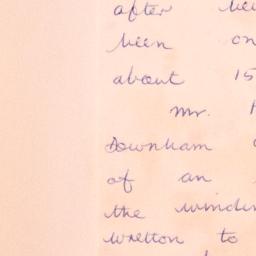 after
been on
about 15
Mr.
Downham
of an
the
Wretton to